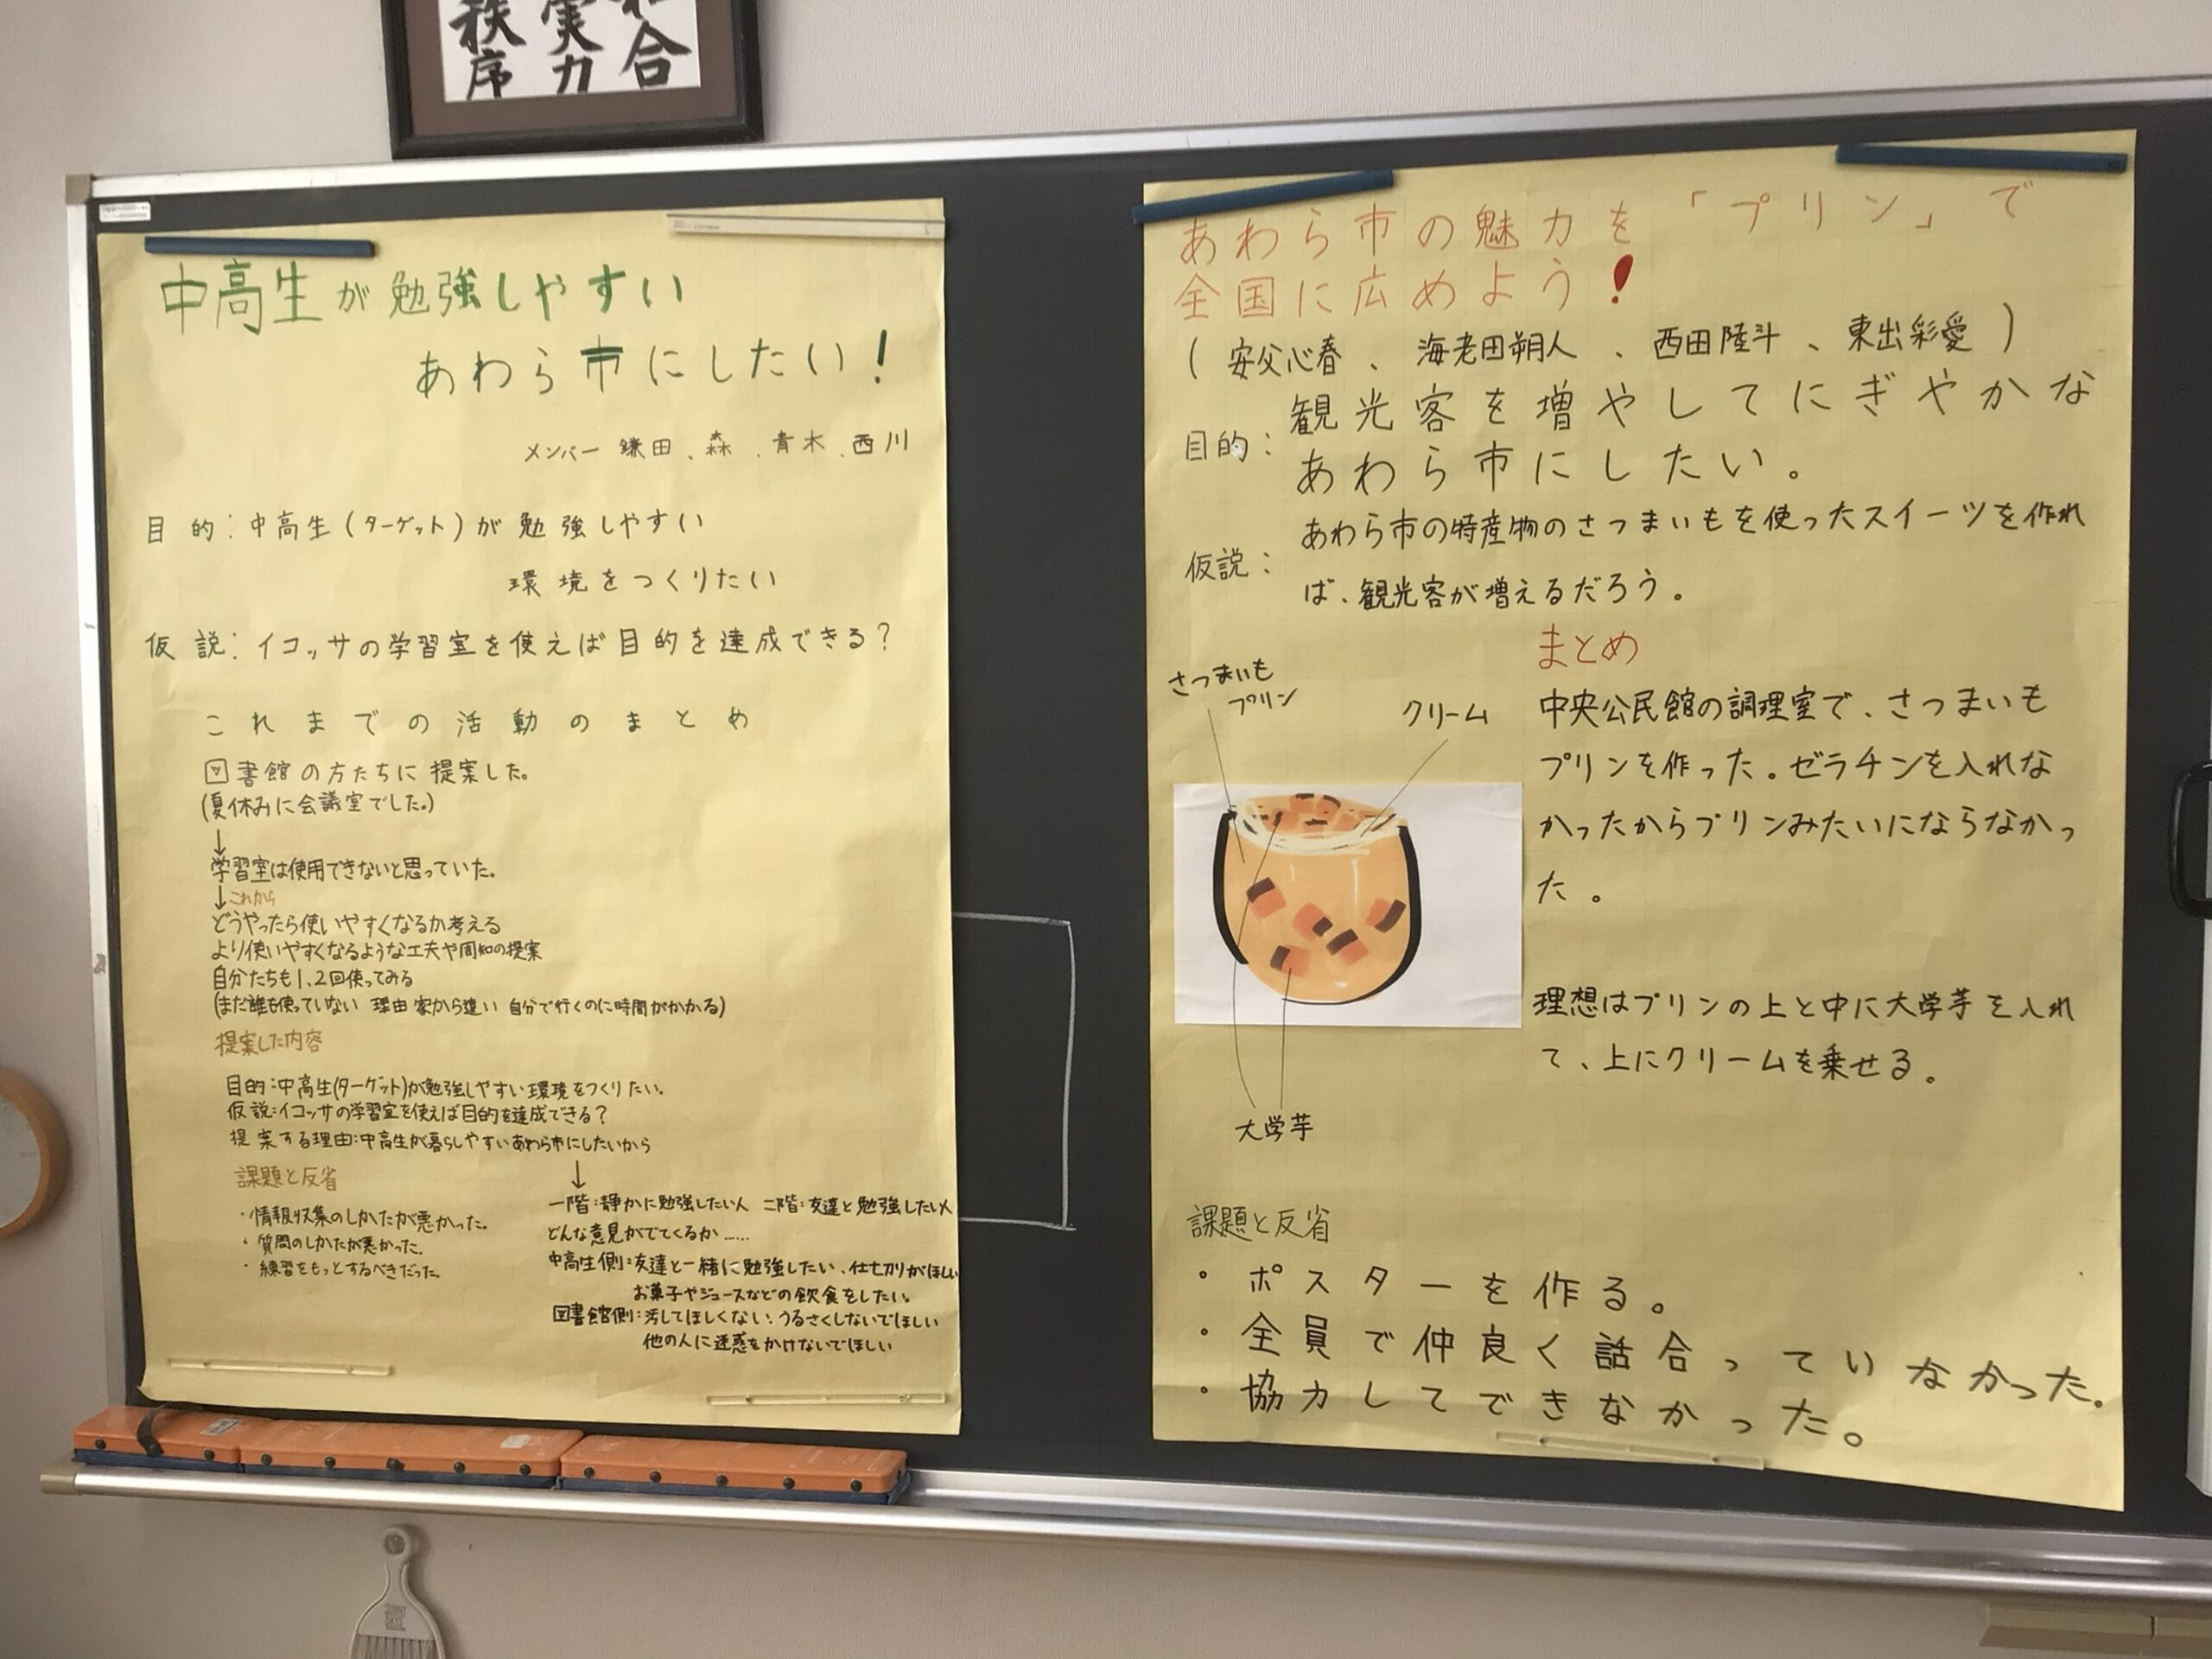 合
実力
秩序
中高生が勉強しやすい
あわら市にしたい!
メンバー 鎌田、森、青木、西川
目的:中高生(ターゲット)が勉強しやすい
環境をつくりたい
仮説:イコッサの学習室を使えば目的を達成できる?
これまでの活動のまとめ
図書館の方たちに提案した。
(夏休みに会議室でした。)
↓
学習室は使用できないと思っていた。
↓これから
どうやったら使いやすくなるか考える
より使いやすくなるような工夫や周知の提案
自分たちも1、2回使ってみる
(まだ誰も使っていない 理由 家から遠い 自分で行くのに時間がかかる)
提案した内容
目的:中高生(ターゲット)が勉強しやすい環境をつくりたい。
仮説:イコッサの学習室を使えば目的を達成できる?
提案する理由:中高生が暮らしやすいあわら市にしたいから
課題と反省
・情報収集のしかたが悪かった。
・質問のしかたが悪かった。
・練習をもっとするべきだった。
↓
一階:静かに勉強したい人 二階:友達と勉強したい人
どんな意見がでてくるか……
中高生側:友達と一緒に勉強したい、仕切りがほしい
お菓子やジュースなどの飲食をしたい。
図書館側:汚してほしくない、うるさくしないでほしい
他の人に迷惑をかけないでほしい
あわら市の魅力を「プリン」で
全国に広めよう!
(安父心春、海老田朔人、西田陸斗、東出彩愛)
目的:観光客を増やしてにぎやかな
あわら市にしたい。
仮説:あわら市の特産物のさつまいもを使ったスイーツを作れ
ば、観光客が増えるだろう。
さつまいも
プリン
クリーム
大学芋
まとめ
中央公民館の調理室で、さつまいも
プリンを作った。ゼラチンを入れな
かったからプリンみたいにならなかっ
た。
理想はプリンの上と中に大学芋を入れ
て、上にクリームを乗せる。
課題と反省
・ポスターを作る。
・全員で仲良く話合っていなかった。
・協力してできなかった。